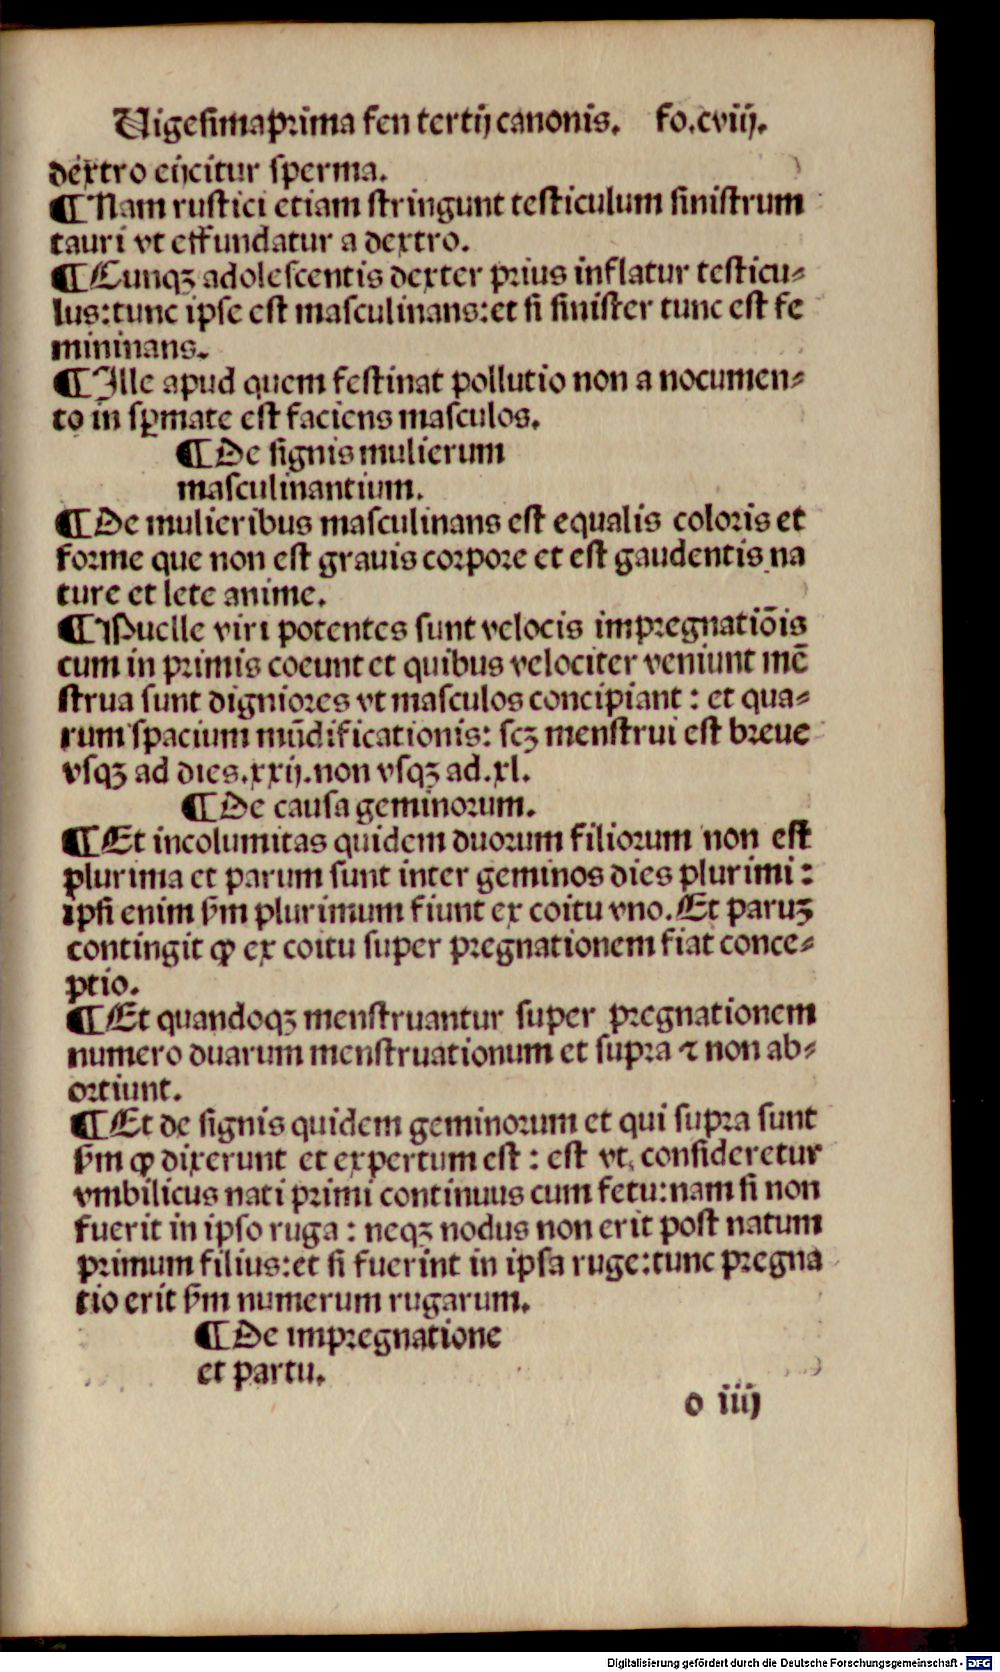 Vigesimaprima fen tertij canonis. fo.cviij.
dextro eijcitur sperma.
¶ Nam rustici etiam stringunt testiculum sinistrum
tauri vt effundatur a dextro.
¶ Cunqꝫ adolescentis dexter prius inflatur testicu⸗
lus:tunc ipse est masculinans:et si sinister tunc est fe
mininans.
¶ Ille apud quem festinat pollutio non a nocumen⸗
to in sꝑmate est faciens masculos.
¶ De signis mulierum
masculinantium.
¶ De mulieribus masculinans est equalis coloris et
forme que non est grauis corpore et est gaudentis na
ture et lete anime.
¶ Puelle viri potentes sunt velocis impregnatiōis
cum in primis coeunt et quibus velociter veniunt mē
strua sunt digniores vt masculos concipiant : et qua⸗
rum spacium mūdificationis: scꝫ menstrui est breue
vsqꝫ ad dies.xxij.non vsqꝫ ad.xl.
¶ De causa geminorum.
¶ Et incolumitas quidem duorum filiorum non est
plurima et parum sunt inter geminos dies plurimi :
ipsi enim ẜm plurimum fiunt ex coitu vno. Et paruꝫ
contingit ꝙ ex coitu super pregnationem fiat conce⸗
ptio.
¶ Et quandoqꝫ menstruantur super pregnationem
numero duarum menstruationum et supra ⁊ non ab⸗
ortiunt.
¶ Et de signis quidem geminorum et qui supra sunt
ẜm ꝙ dixerunt et expertum est : est vt consideretur
vmbilicus nati primi continuus cum fetu:nam si non
fuerit in ipso ruga : neqꝫ nodus non erit post natum
primum filius:et si fuerint in ipsa ruge:tunc pregna
tio erit ẜm numerum rugarum.
¶ De impregnatione
et partu.
o iiij
Digitalisierung gefördert durch die Deutsche Forschungsgemeinschaft - DFG